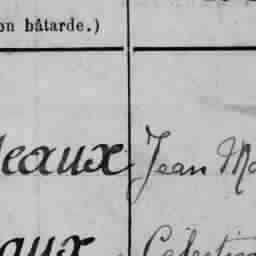 on bâtarde.)
eaux Jean Ma
aux Célestin